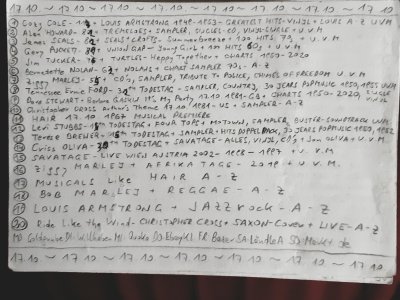 17.10 ~ 17.10 ~ 17.10 ~ 17.10 ~ 17.10 ~ 17.10
① COZY COLE - LOUIS ARMSTRONG 1949-1953 - GREATEST HITS - VINYL + LOUIS A-Z U.V.M
② Alan HOWARD - TREMELOES + SAMPLER, SINGLES, CD, VINYL, U.V.M
③ JAMES SEALS - SEALS + CROFTS - Summer Breeze + 100 HITS 70s + U.V.M
④ GARY PUCKETT UNION GAP - Young Girl + 100 HITS 60s + U.V.M
⑤ Jim TUCKER - TURTLES - Happy Together + CHARTS 1950-2020
⑥ Bernadette NOLAN - NOLANS + CHART SAMPLER 70s - A-Z
⑦ ZIGGY MARLEY - CDs, SAMPLER, TRIBUTE TO POLICE, CHIMES OF FREEDOM U.V.M
⑧ Tennessee Ernie FORD - TODESTAG - SAMPLER, COUNTRY, 30 JEARS POPMUSIC 1950, 1955 UVM
⑨ Dave STEWART + Barbara GASKIN IT'S My Party 17.10.1981 - GB + CHARTS 1950-2020
⑩ Christopher CROSS Arthur's Theme 17.10.1981 - US + SAMPLER - A-Z
⑪ HAIR 17.10.1967 MUSICAL PREMIERE
⑫ Levi STUBBS - TODESTAG + FOUR TOPS + MOTOWN, SAMPLER, BUSTER-SOUNDTRACK UVM
⑬ Teresa BREWER - TODESTAG + SAMPLER + HITS DOPPEL, 30 JEARS POPMUSIC 1950, 1952
⑭ Criss OLIVA - TODESTAG + SAVATAGE - ALLES, VINYL, CDs + Jon OLIVA + U.V.M
⑮ SAVATAGE - LIVE WIEN AUSTRIA 2002-1998-1997 + U.V.M
⑯ ZIGGY MARLEY + AFRIKA TAGE - 2019 + U.V.M.
⑰ MUSICALS Like HAIR A-Z
⑱ BOB MARLEY + REGGAE - A-Z
⑲ LOUIS ARMSTRONG + JAZZrock - A-Z
⑳ Ride Like the Wind - CHRISTOPHER CROSS + SAXON-Cover + LIVE - A-Z
MO Goldgrube DI MI DO FR SA SO
17.10 ~ 17.10 ~ 17.10 ~ 17.10 ~ 17.10 ~ 17.10